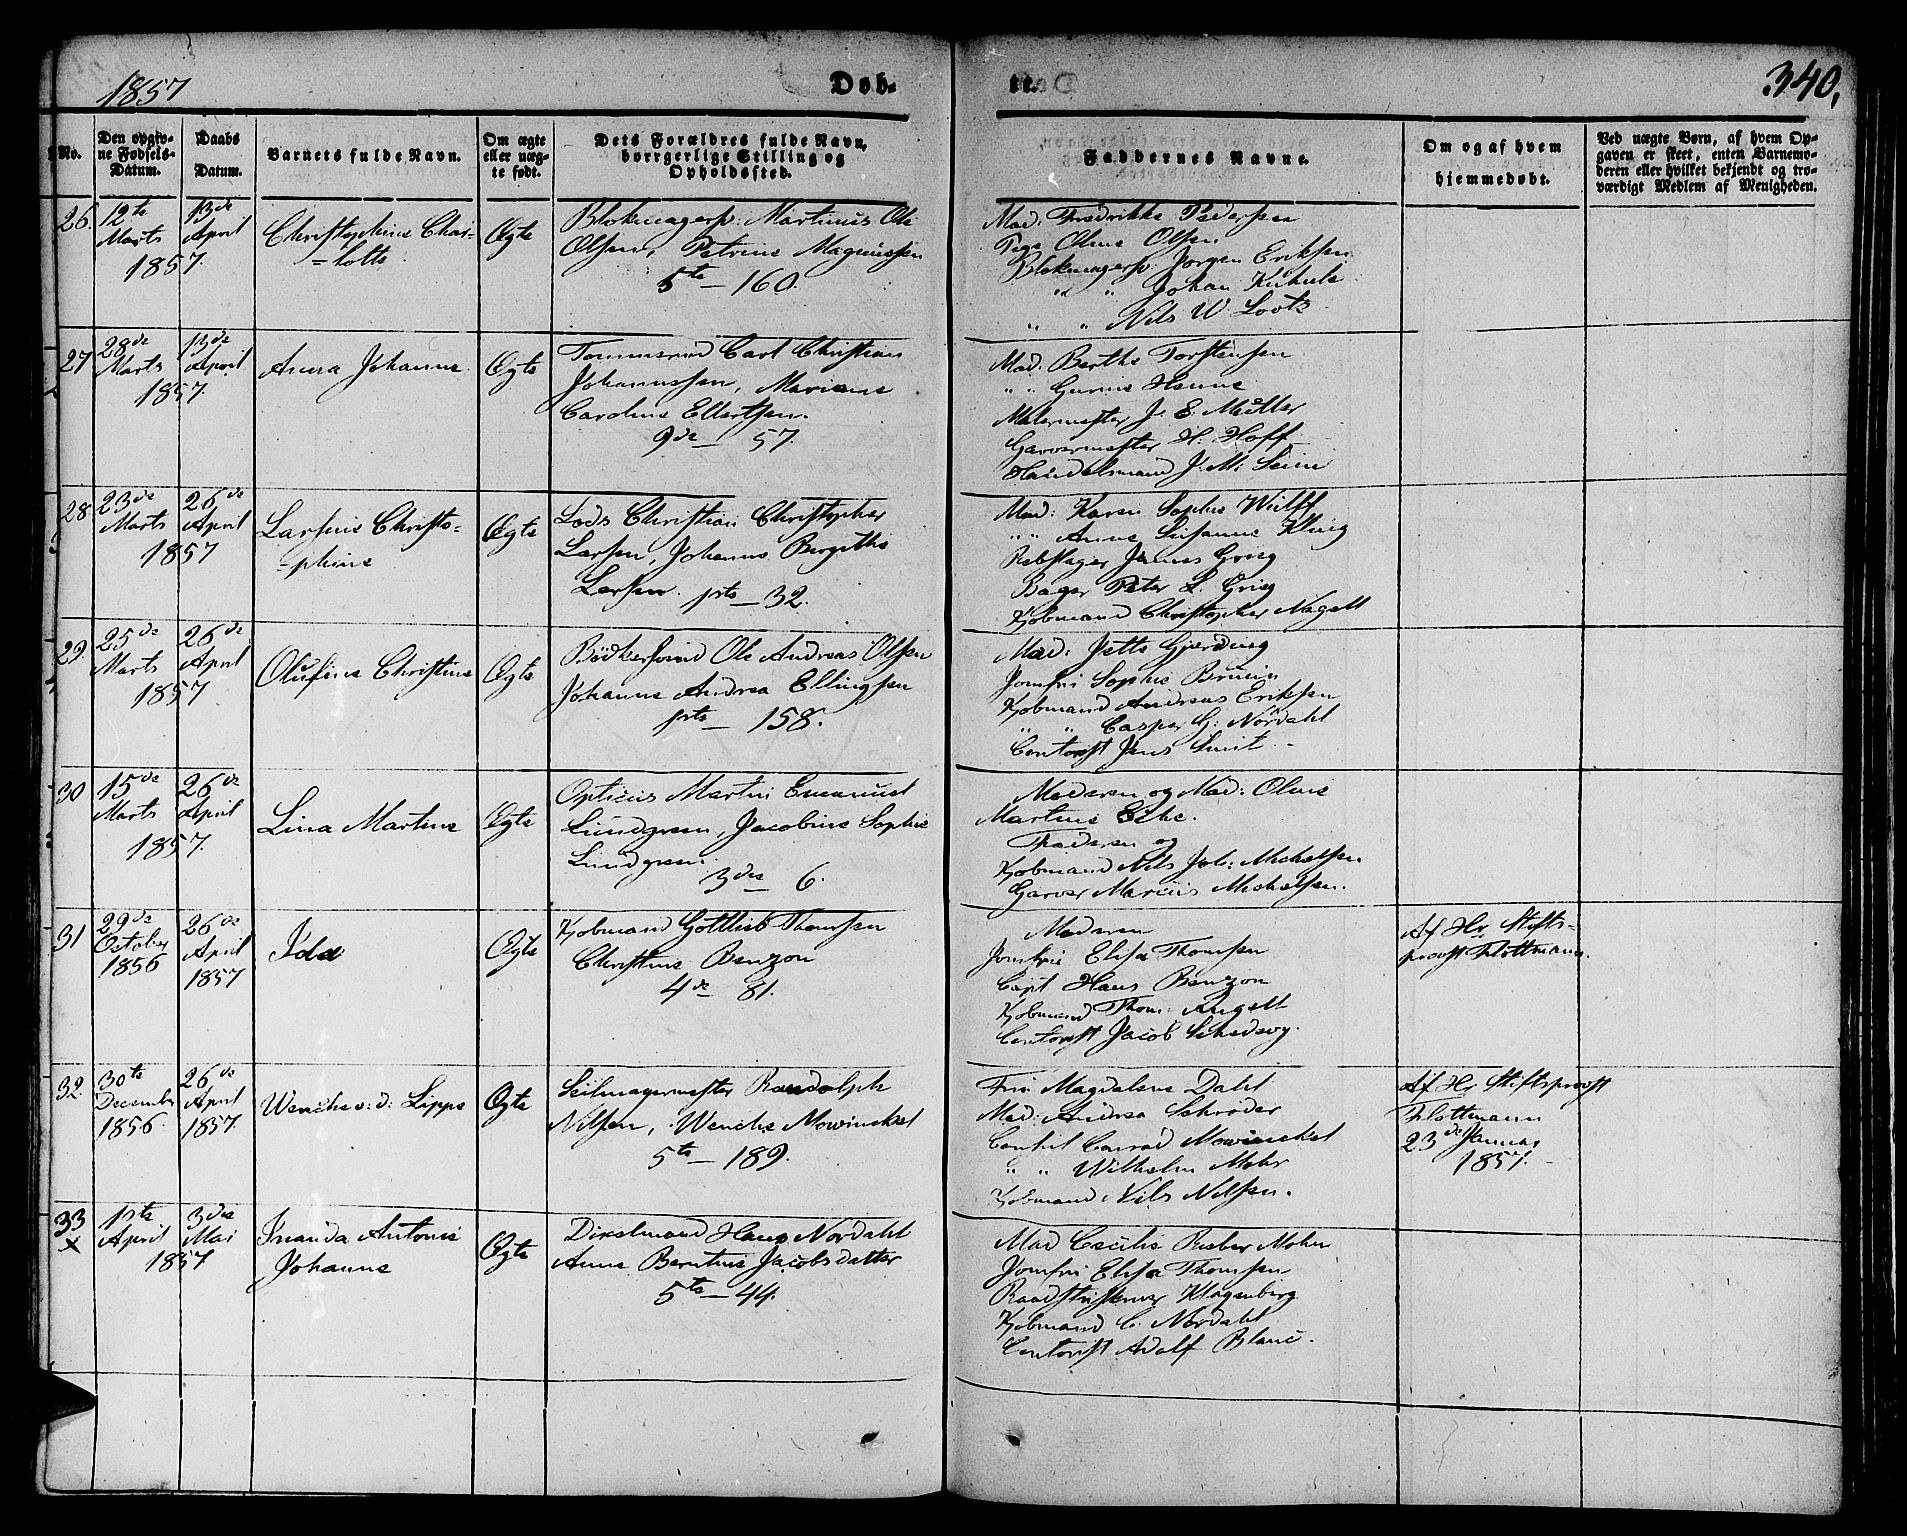 1857
Døb-
te.
340.
No.
Den opgiv-
ne Fødsels-
Datum.
Daabs
Datum.
Barnets fulde Navn.
Om ægte
eller uæg-
te født.
Dets Forældres fulde Navn,
borrgerlige Stilling og
Opholdssted.
Faddernes Navne.
Om og af hvem
hjemmedøbt.
Ved uægte Børn, af hvem Op-
gaven er skeet, enten Barnemo-
deren eller hvilket bekjendt og tro-
værdigt Medlem af Menigheden.
26.
12te
Marts
1857.
13de
April
Christophine Char-
=lotte
Ægte
Blokmagersv: Martinus Ole
Olsen, Petrine Magnussen
5te — 160.
Mad: Fredrikke Pedersen
Pige Oline Olsen
Blokmagersv. Jørgen Eriksen
" " Johan Kuhnle
" " Nils W. Lootz
27
28de
Marts
1857.
13de
April
Anna Johanne.
Ægte
Tømmermd Carl Christian
Johannessen, Mariane
Caroline Ellertsen.
9de — 57.
Mad. Berthe Torstensen
" " Gurine Henne
Malermester J. E. Müller
Garvermester H. Hoff
Handelsmand J. M. Seim
28
23de
Marts
1857
26de
April
Larsine Christo-
-phine
Ægte
Lods Christian Christopher
Larsen, Johanne Bergithe
Larsen. 1ste — 32.
Mad: Karen Sophie Wulff
" " Anne Susanne Kling
Rebslager James Grieg
Bager Peter L. Grieg
Kjøbmand Christopher Nagell
29.
25de
Marts
1857
26de
April
Olufine Christine
Ægte
Bødkersvend Ole Andreas Olsen
Johanne Andrea Ellingsen
1ste — 158.
Mad: Jette Gjerding
Jomfru Sophie Bruun
Kjøbmand Andreas Eriksen
" " Casper G: Nordahl
Contorist Jens Smit.
30
15de
Marts
1857.
26de
April
Lina Martine
Ægte
Opticus Martin Emanuel
Lundgreen, Jacobine Sophie
Lundgreen.
3die — 6.
Moderen og Mad: Oline
Martine
Faderen og
Kjøbmand Nils Joh: Michelsen
Garver Marcus Michelsen.
31
29de
October
1856
26de
April
1857
Ida
Ægte
Kjøbmand Gottlieb Thomsen
Christine Benzon
4de 81.
Moderen
Jomfru Elisa Thomsen
Capt Hans Benzon
Kjøbmand Thom: Angell
Contorist Jacob
Af Hr Stifts-
provst Flottmann.
32.
30te
December
1856.
26de
April
1857.
Wenche v: d: Lippe
Ægte
Seilmagermester Randolph
Nilsen, Wenche Mowinckel
5te — 189.
Fru Magdalena Dahl
Mad: Andrea Schrøder
Conrad Mowinckel
" " Wilhelm Mohr
Kjøbmand Nils Nilsen.
Af Hr Stiftsprovst
Flottmann
23de Januar
1857.
33
x
1ste
April
1857
3die
Mai
Antonie
Johanne
Ægte
Hans Nordahl
Anne Berntine Jacobsdatter
5te — 44.
Mad Cecilie Mohn
Jomfru Elisa Thomsen
Raadstueskriver Klagenberg
Kjøbmand C. Nordahl
Contorist Adolf Blanc.